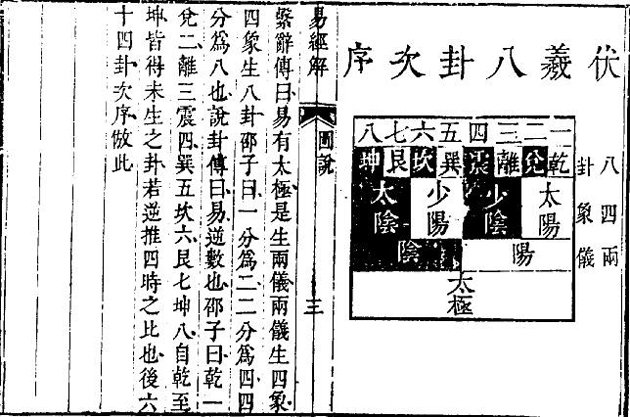 伏羲八卦次序
一二三四五六七八
八卦
乾兌離震巽坎艮坤
四象
太陽
少陰
少陽
太陰
兩儀
陽
陰
太極
易經解 圖說 三
繫辭傳曰易有太極是生兩儀兩儀生四象
四象生八卦邵子曰一分爲二二分爲四四
分爲八也說卦傳曰易逆數也邵子曰乾一
兌二離三震四巽五坎六艮七坤八自乾至
坤皆得未生之卦若逆推四時之比也後六
十四卦次序倣此